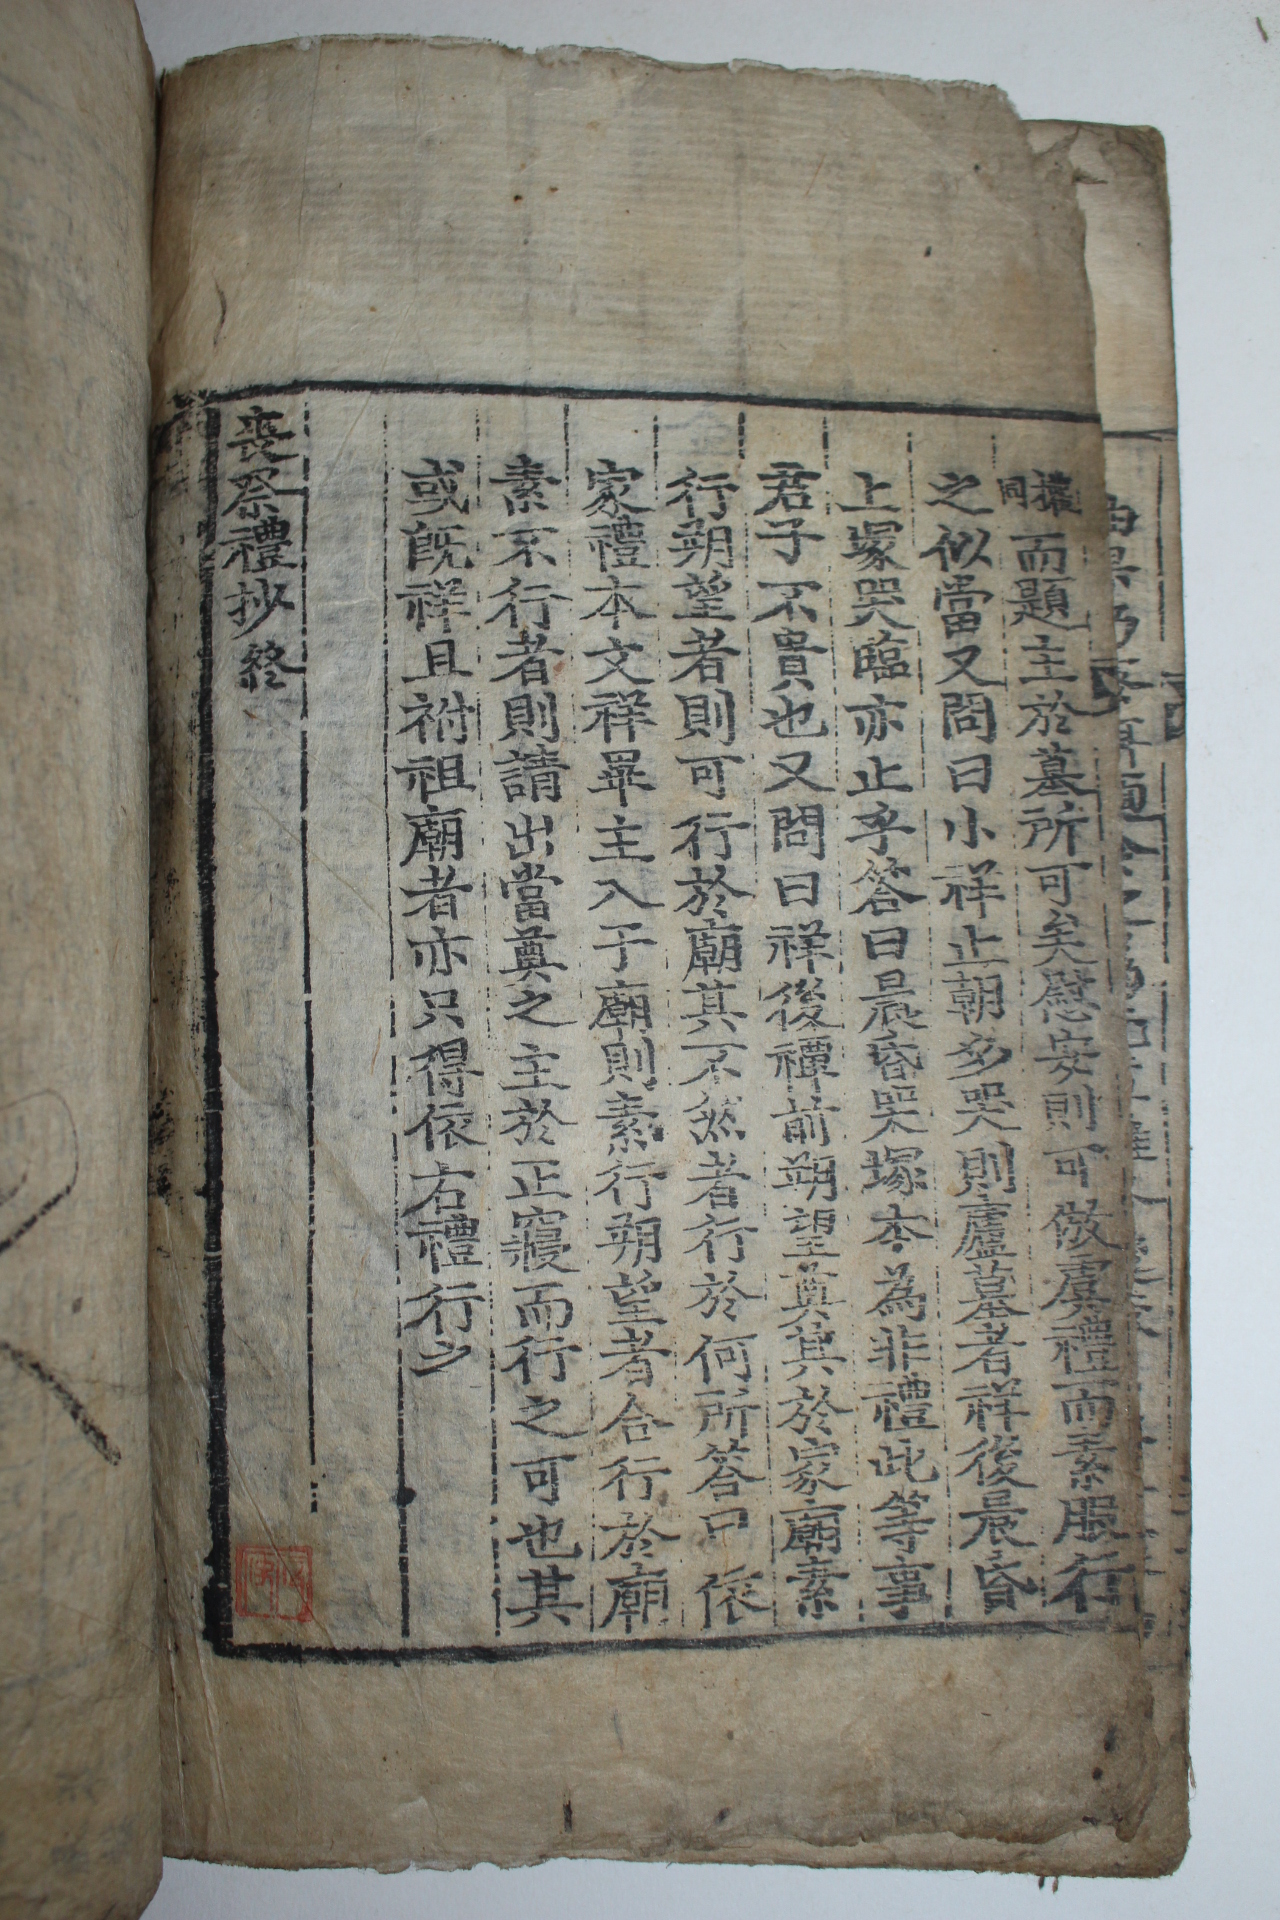 同 而題主於墓所可矣慰安則可倣虞禮而素服行
之似當又問曰小祥止朝夕哭則廬墓者祥後晨昏
上塚哭臨亦止乎答曰晨昏哭塚本為非禮此等事
君子不貴也又問曰祥後禫前朔望奠其於家廟素
行朔望者則可行於廟其不然者行於何所答曰依
家禮本文祥畢主入于廟則素行朔望者合行於廟
素不行者則請出當奠之主於正寢而行之可也其
或既祥且祔祖廟者亦只得依右禮行之
喪祭禮抄 終